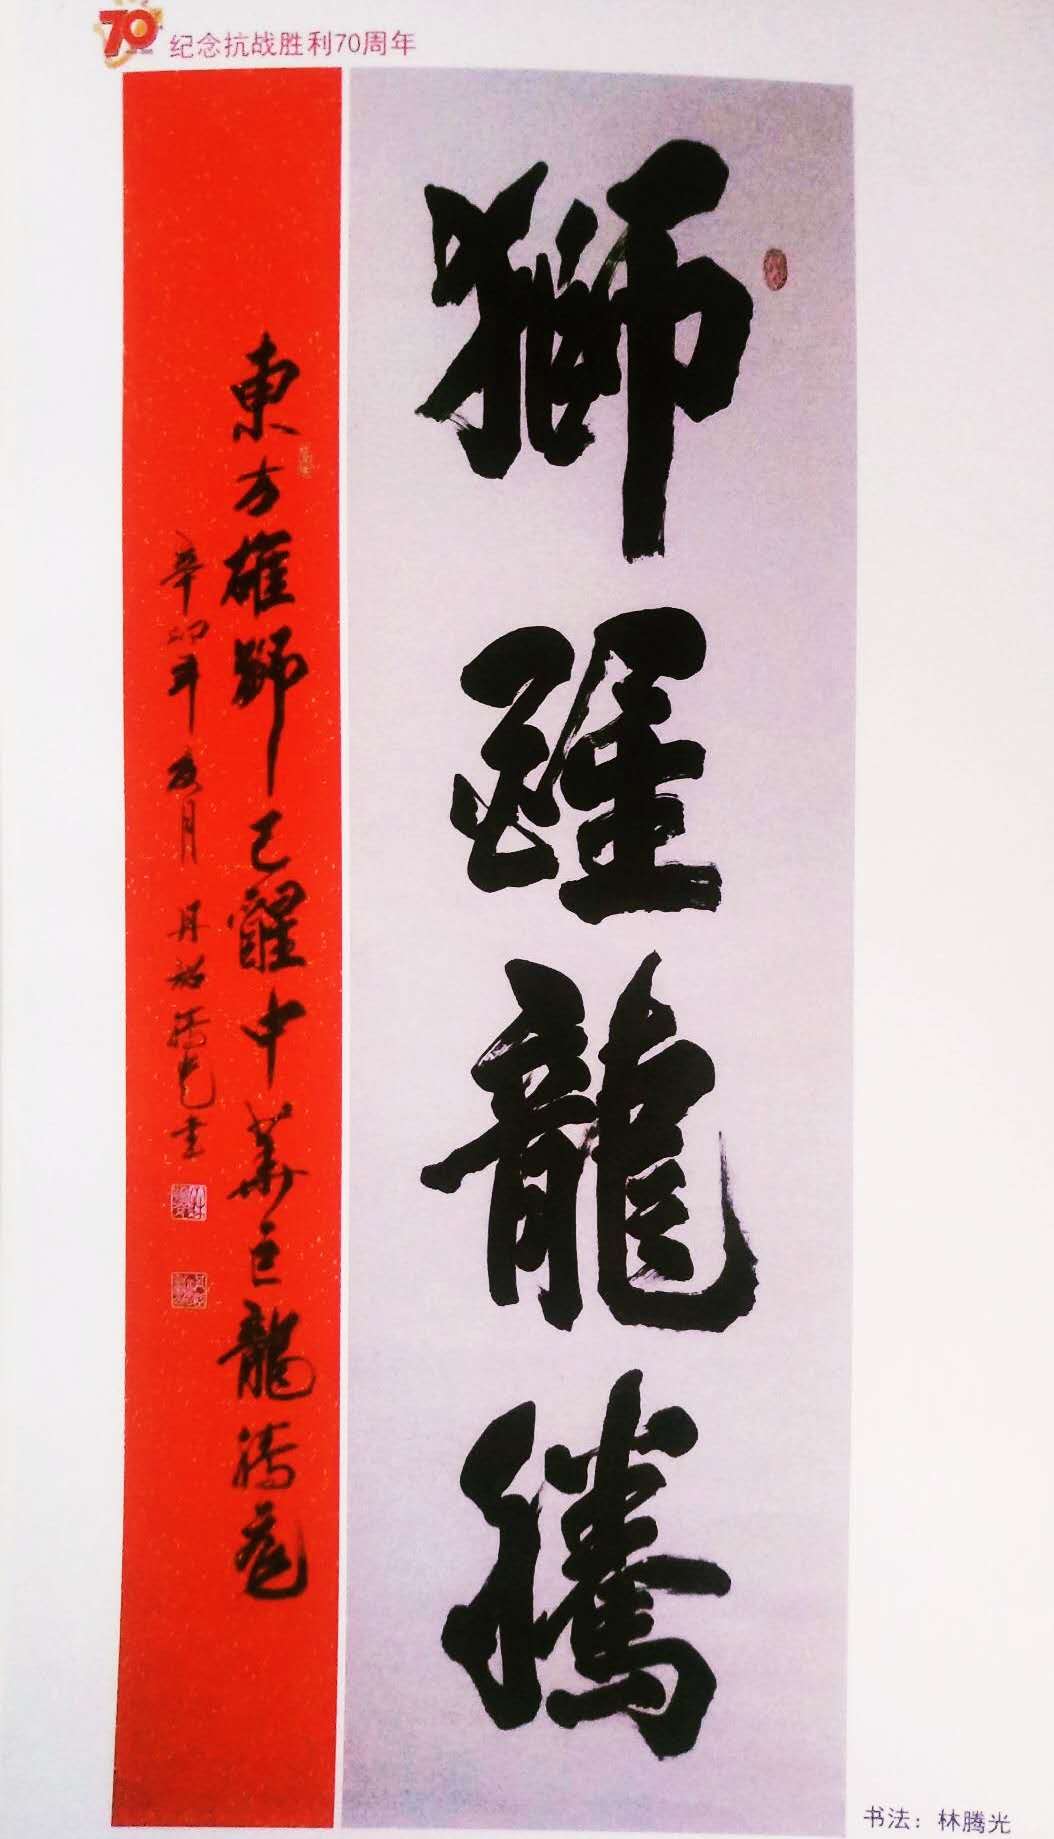 70
纪念抗战胜利70周年
獅醒龍騰
東方雄獅已醒中華巨龍騰飛
辛卯年夏月 丹韶腾光書
书法：林腾光